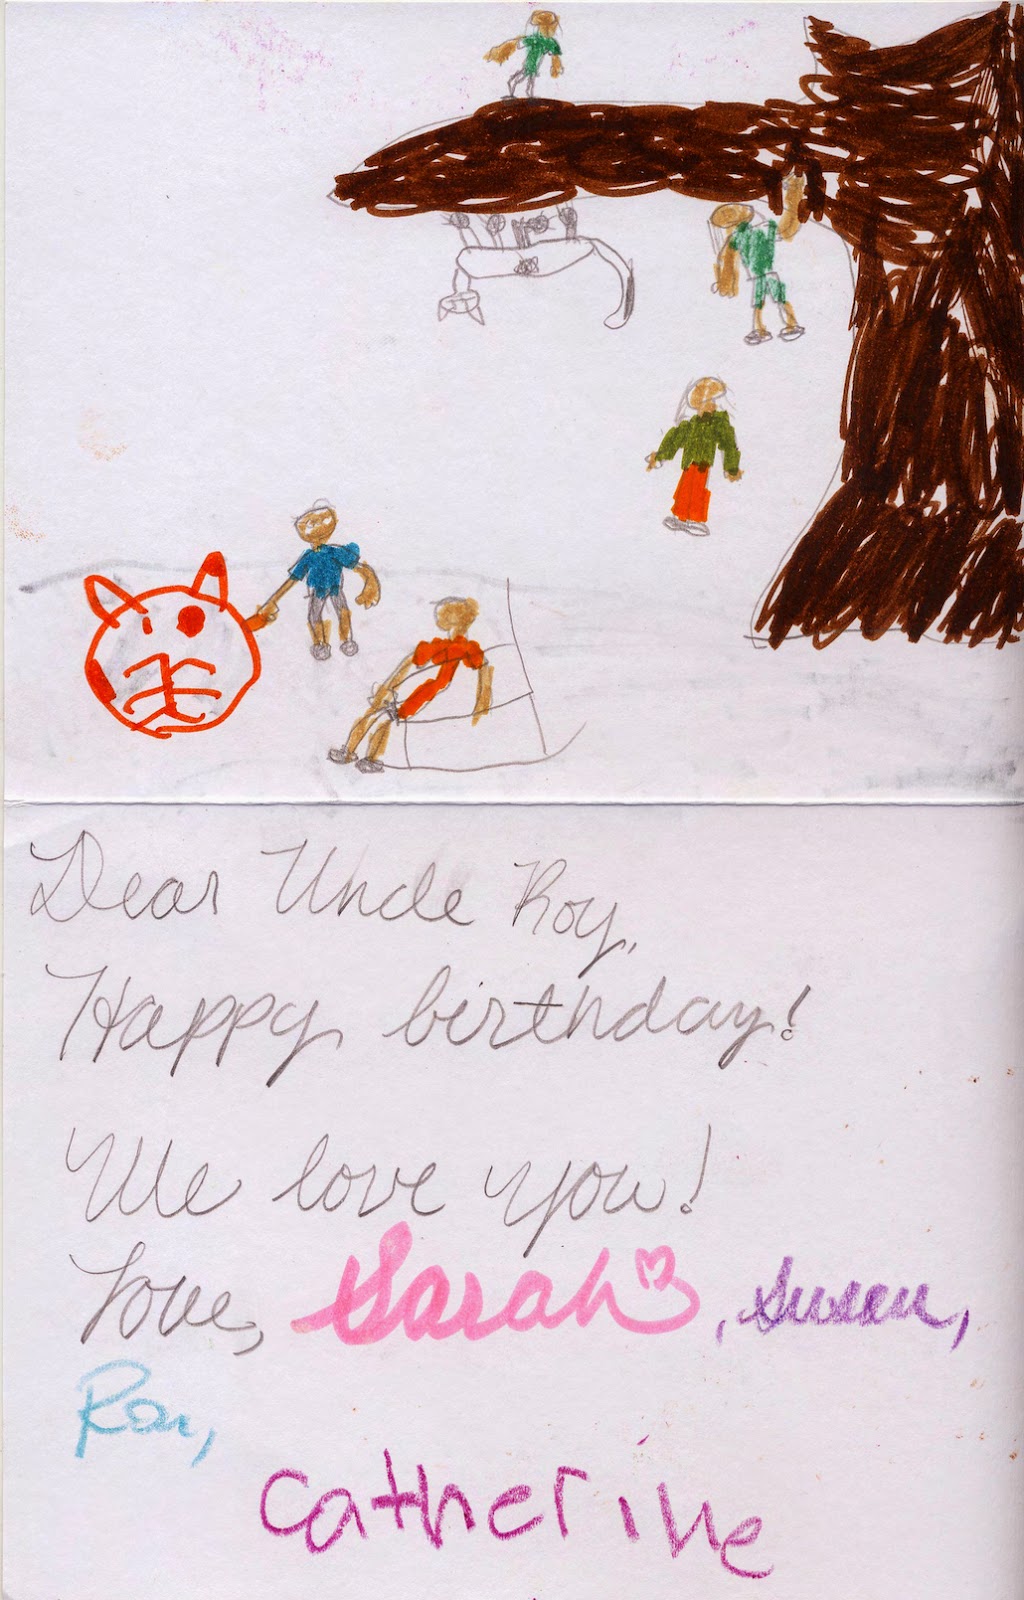 Dear Uncle Roy,
Happy birthday!
We love you!
Love, Sarah, Susan,
Ron,
Catherine